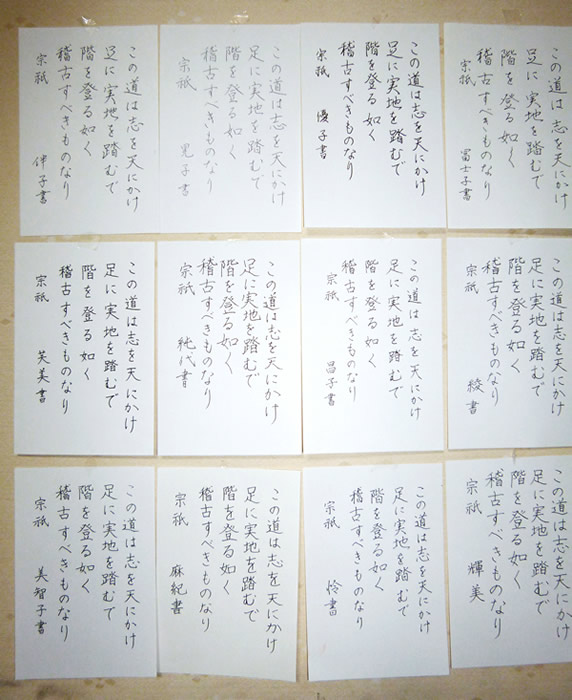 この道は志を天にかけ
足に実地を踏むで
階を登る如く
稽古すべきものなり
宗祇 冨士子書
この道は志を天にかけ
足に実地を踏むで
階を登る如く
稽古すべきものなり
宗祇 優子書
この道は志を天にかけ
足に実地を踏むで
階を登る如く
稽古すべきものなり
宗祇 晃子書
この道は志を天にかけ
足に実地を踏むで
階を登る如く
稽古すべきものなり
宗祇 伸子書
この道は志を天にかけ
足に実地を踏むで
階を登る如く
稽古すべきものなり
宗祇 綾書
この道は志を天にかけ
足に実地を踏むで
階を登る如く
稽古すべきものなり
宗祇 昌子書
この道は志を天にかけ
足に実地を踏むで
階を登る如く
稽古すべきものなり
宗祇 純代書
この道は志を天にかけ
足に実地を踏むで
階を登る如く
稽古すべきものなり
宗祇 芙美書
この道は志を天にかけ
足に実地を踏むで
階を登る如く
稽古すべきものなり
宗祇 輝美
この道は志を天にかけ
足に実地を踏むで
階を登る如く
稽古すべきものなり
宗祇 怜書
この道は志を天にかけ
足に実地を踏むで
階を登る如く
稽古すべきものなり
宗祇 麻紀書
この道は志を天にかけ
足に実地を踏むで
階を登る如く
稽古すべきものなり
宗祇 美智子書